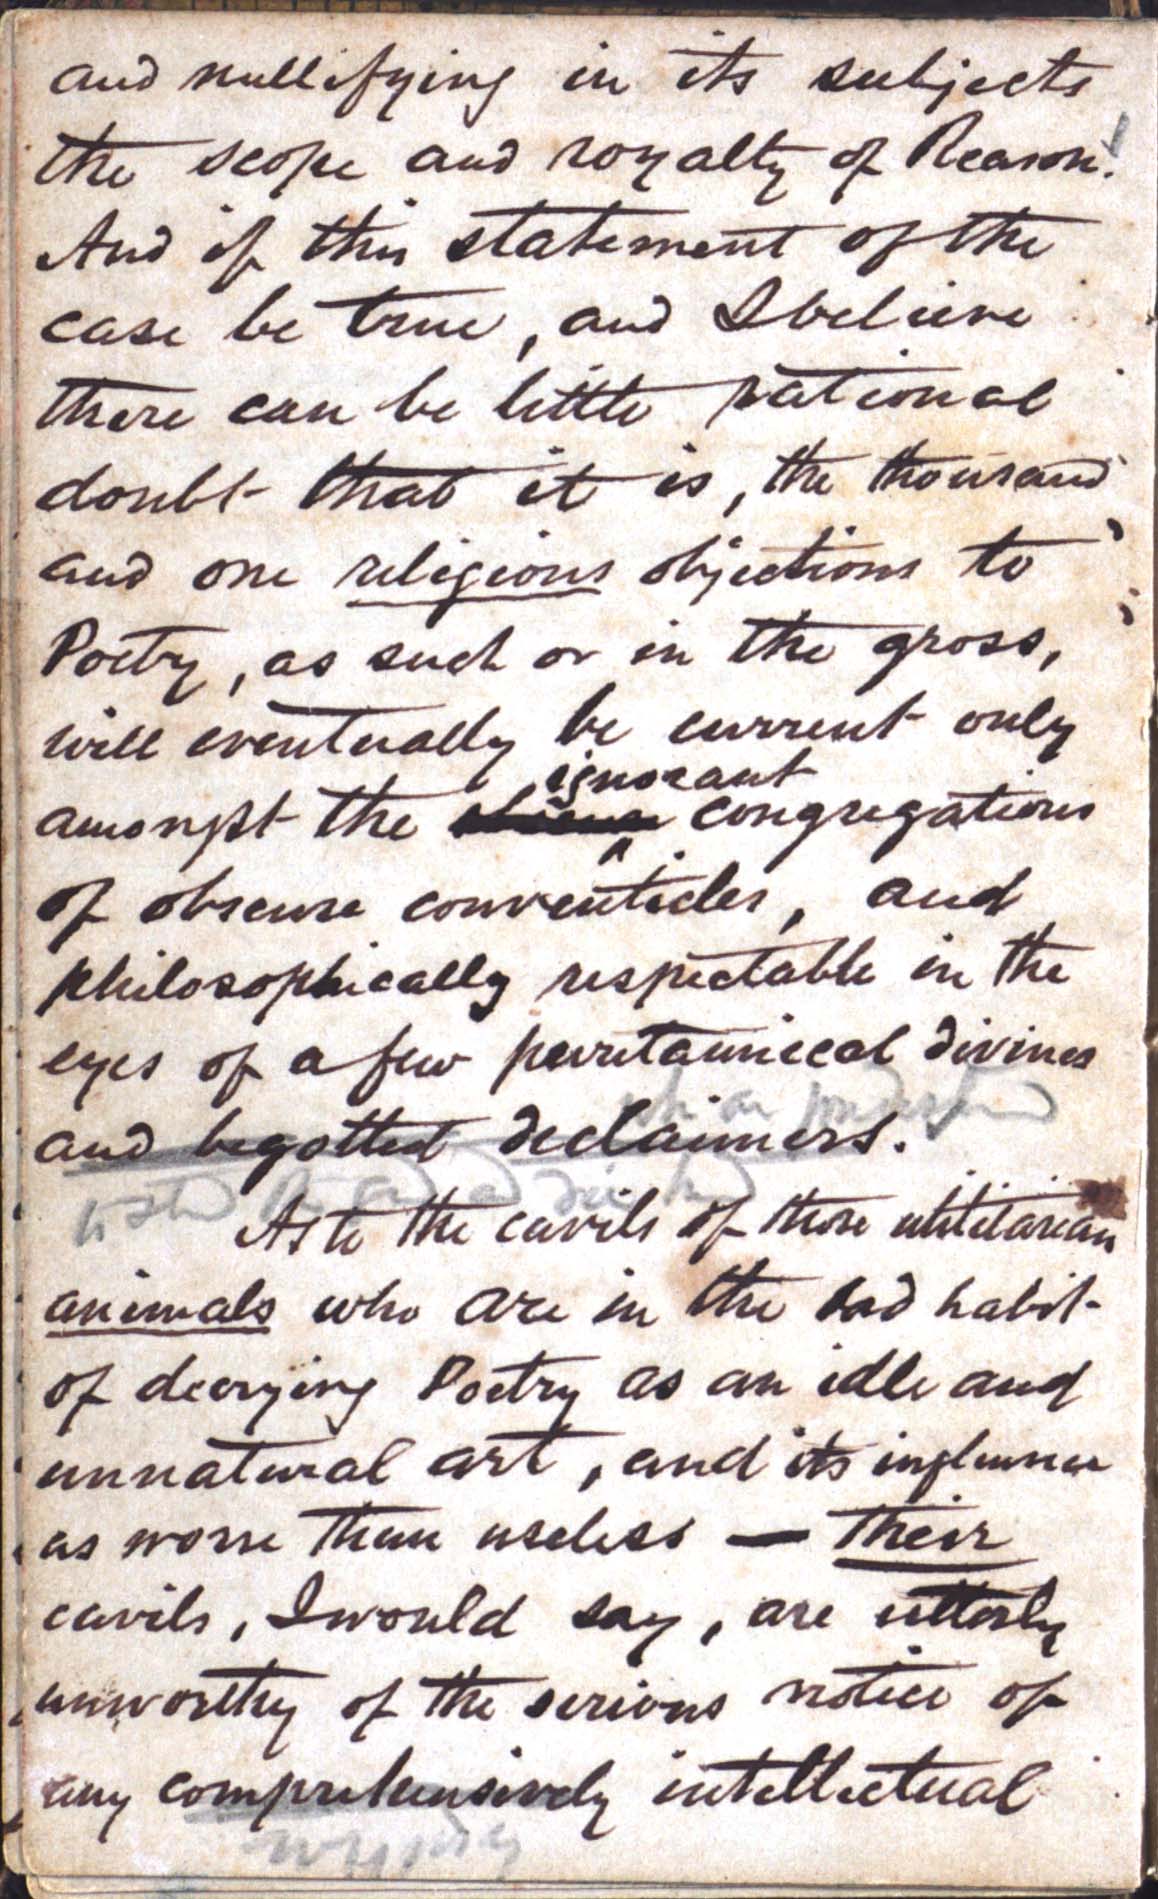 and nullifying in its subjects
the scope and royalty of Reason!
And if this statement of the
case be true, and I believe
there can be little rational
doubt that it is, the thousand
and one religious objections to
Poetry, as such or in the gross,
will eventually be current only
ignorant
amongst the congregations
of obscure conventicles, and
philosophically respectable in the
eyes of a few puritannical divines
and begotted declaimers.
As to the cavils of those utilitarian
animals who are in the bad habit
of decrying Poetry as an idle and
unnatural art, and its influence
as worse than useless — their
cavils, I would say, are utterly
unworthy of the serious notice of
any comprehensively intellectual